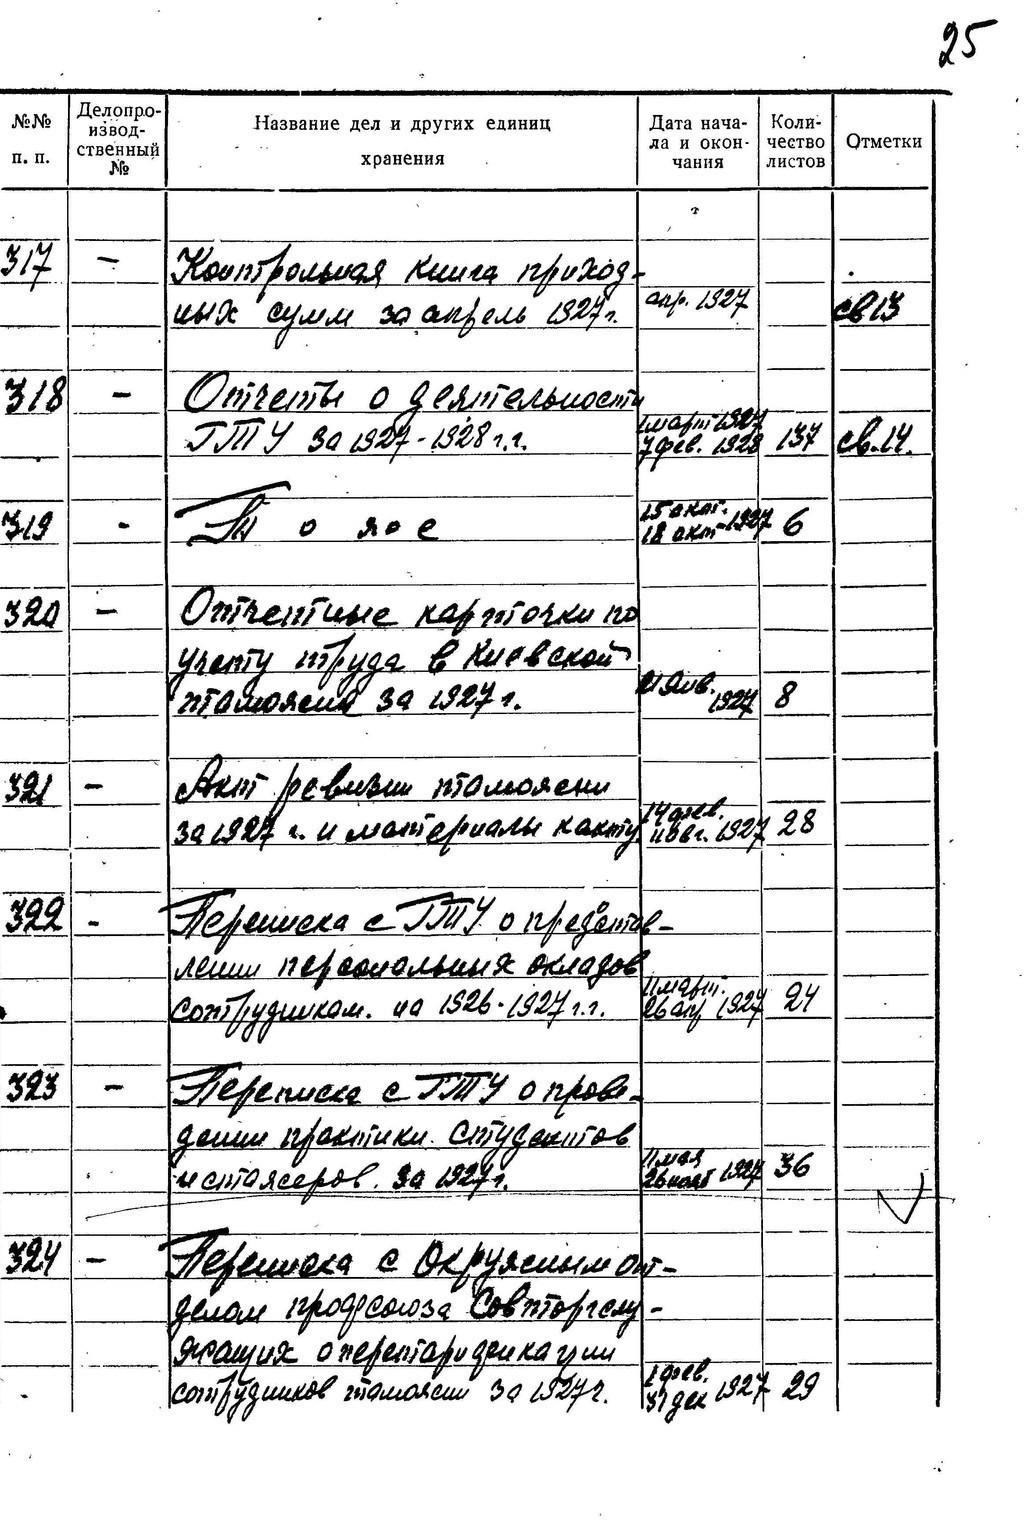 25
№№ п. п.
Делопро-
извод-
ственный
№
Название дел и других единиц
хранения
Дата нача-
ла и окон-
чания
Коли-
чество
листов
Отметки
317 — Контрольная книга приход-
ных сумм за апрель 1927 г. апр. 1927 св 13
318 — Отчеты о деятельности
ГТУ за 1927-1928 г.г. 1 март 1927
7 фев. 1928 137 св. 14.
319 - То же 15 окт.
18 окт 1927 6
320 — Отчетные карточки по
учету труда в Киевской
таможни за 1927 г. 21 янв. 1927 8
321 — Акт ревизии таможни
за 1927 г. и материалы к акту. 14 фев.
1927 28
322 - Переписка с ГТУ о представ-
лении персональных окладов
сотрудникам. на 1926-1927 г.г. 11 март.
26 апр 1927 24
323 — Переписка с ГТУ о прове-
дении практики студентов
и стажеров. за 1927 г. 11 мая
26 нояб 1927 36
324 — Переписка с Окружным от-
делом профсоюза Совторгслу-
жащих о перетарификации
сотрудников таможни за 1927 г. 1 фев.
31 дек 1927 29